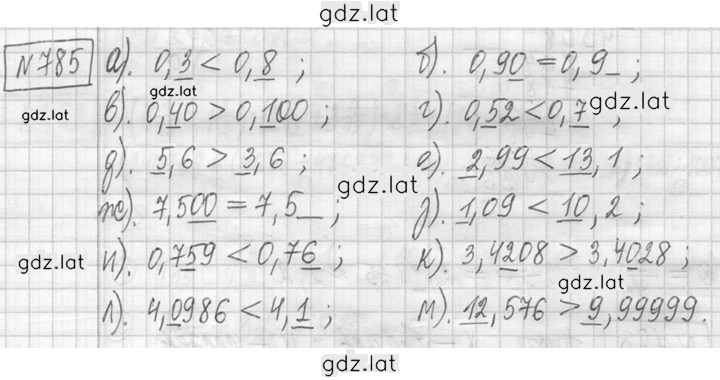 gdz.lat
№785 а). 0,3 < 0,8 ; б). 0,90 = 0,9_ ;
gdz.lat gdz.lat в). 0,40 > 0,100 ; г). 0,52 < 0,7 ; gdz.lat
д). 5,6 > 3,6 ; е). 2,99 < 13,1 ;
ж). 7,500 = 7,5__ ; gdz.lat з). 1,09 < 10,2 ;
gdz.lat и). 0,759 < 0,76 ; к). 3,4208 > 3,4028 ;
gdz.lat
л). 4,0986 < 4,1 ; м). 12,576 > 9,99999.
gdz.lat